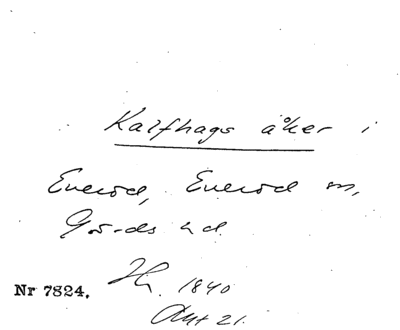 Kalfhags åker i
Everöd, Everöd sn,
Gärds hd.
Nr 7824. Hr. 1840
Akt 21.